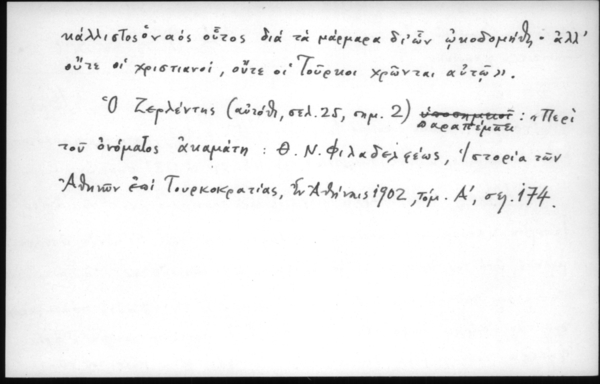 κάλλιστος ὁ ναός οὗτος διά τά μάρμαρα δι' ὧν ᾠκοδομήθη · ἀλλ'
οὔτε οἱ χριστιανοί, οὔτε οἱ Τοῦρκοι χρῶνται αὐτῷ».
Ὁ Ζερλέντης (αὐτόθι, σελ. 25, σημ. 2) ὑποσημειοῖ παραπέμπει : «Περί
τοῦ ὀνόματος ἀκαμάτη : Θ. Ν. Φιλαδελφέως, Ἱστορία τῶν
Ἀθηνῶν ἐπί Τουρκοκρατίας, ἐν Ἀθήναις 1902, τόμ. Α', σελ. 174.